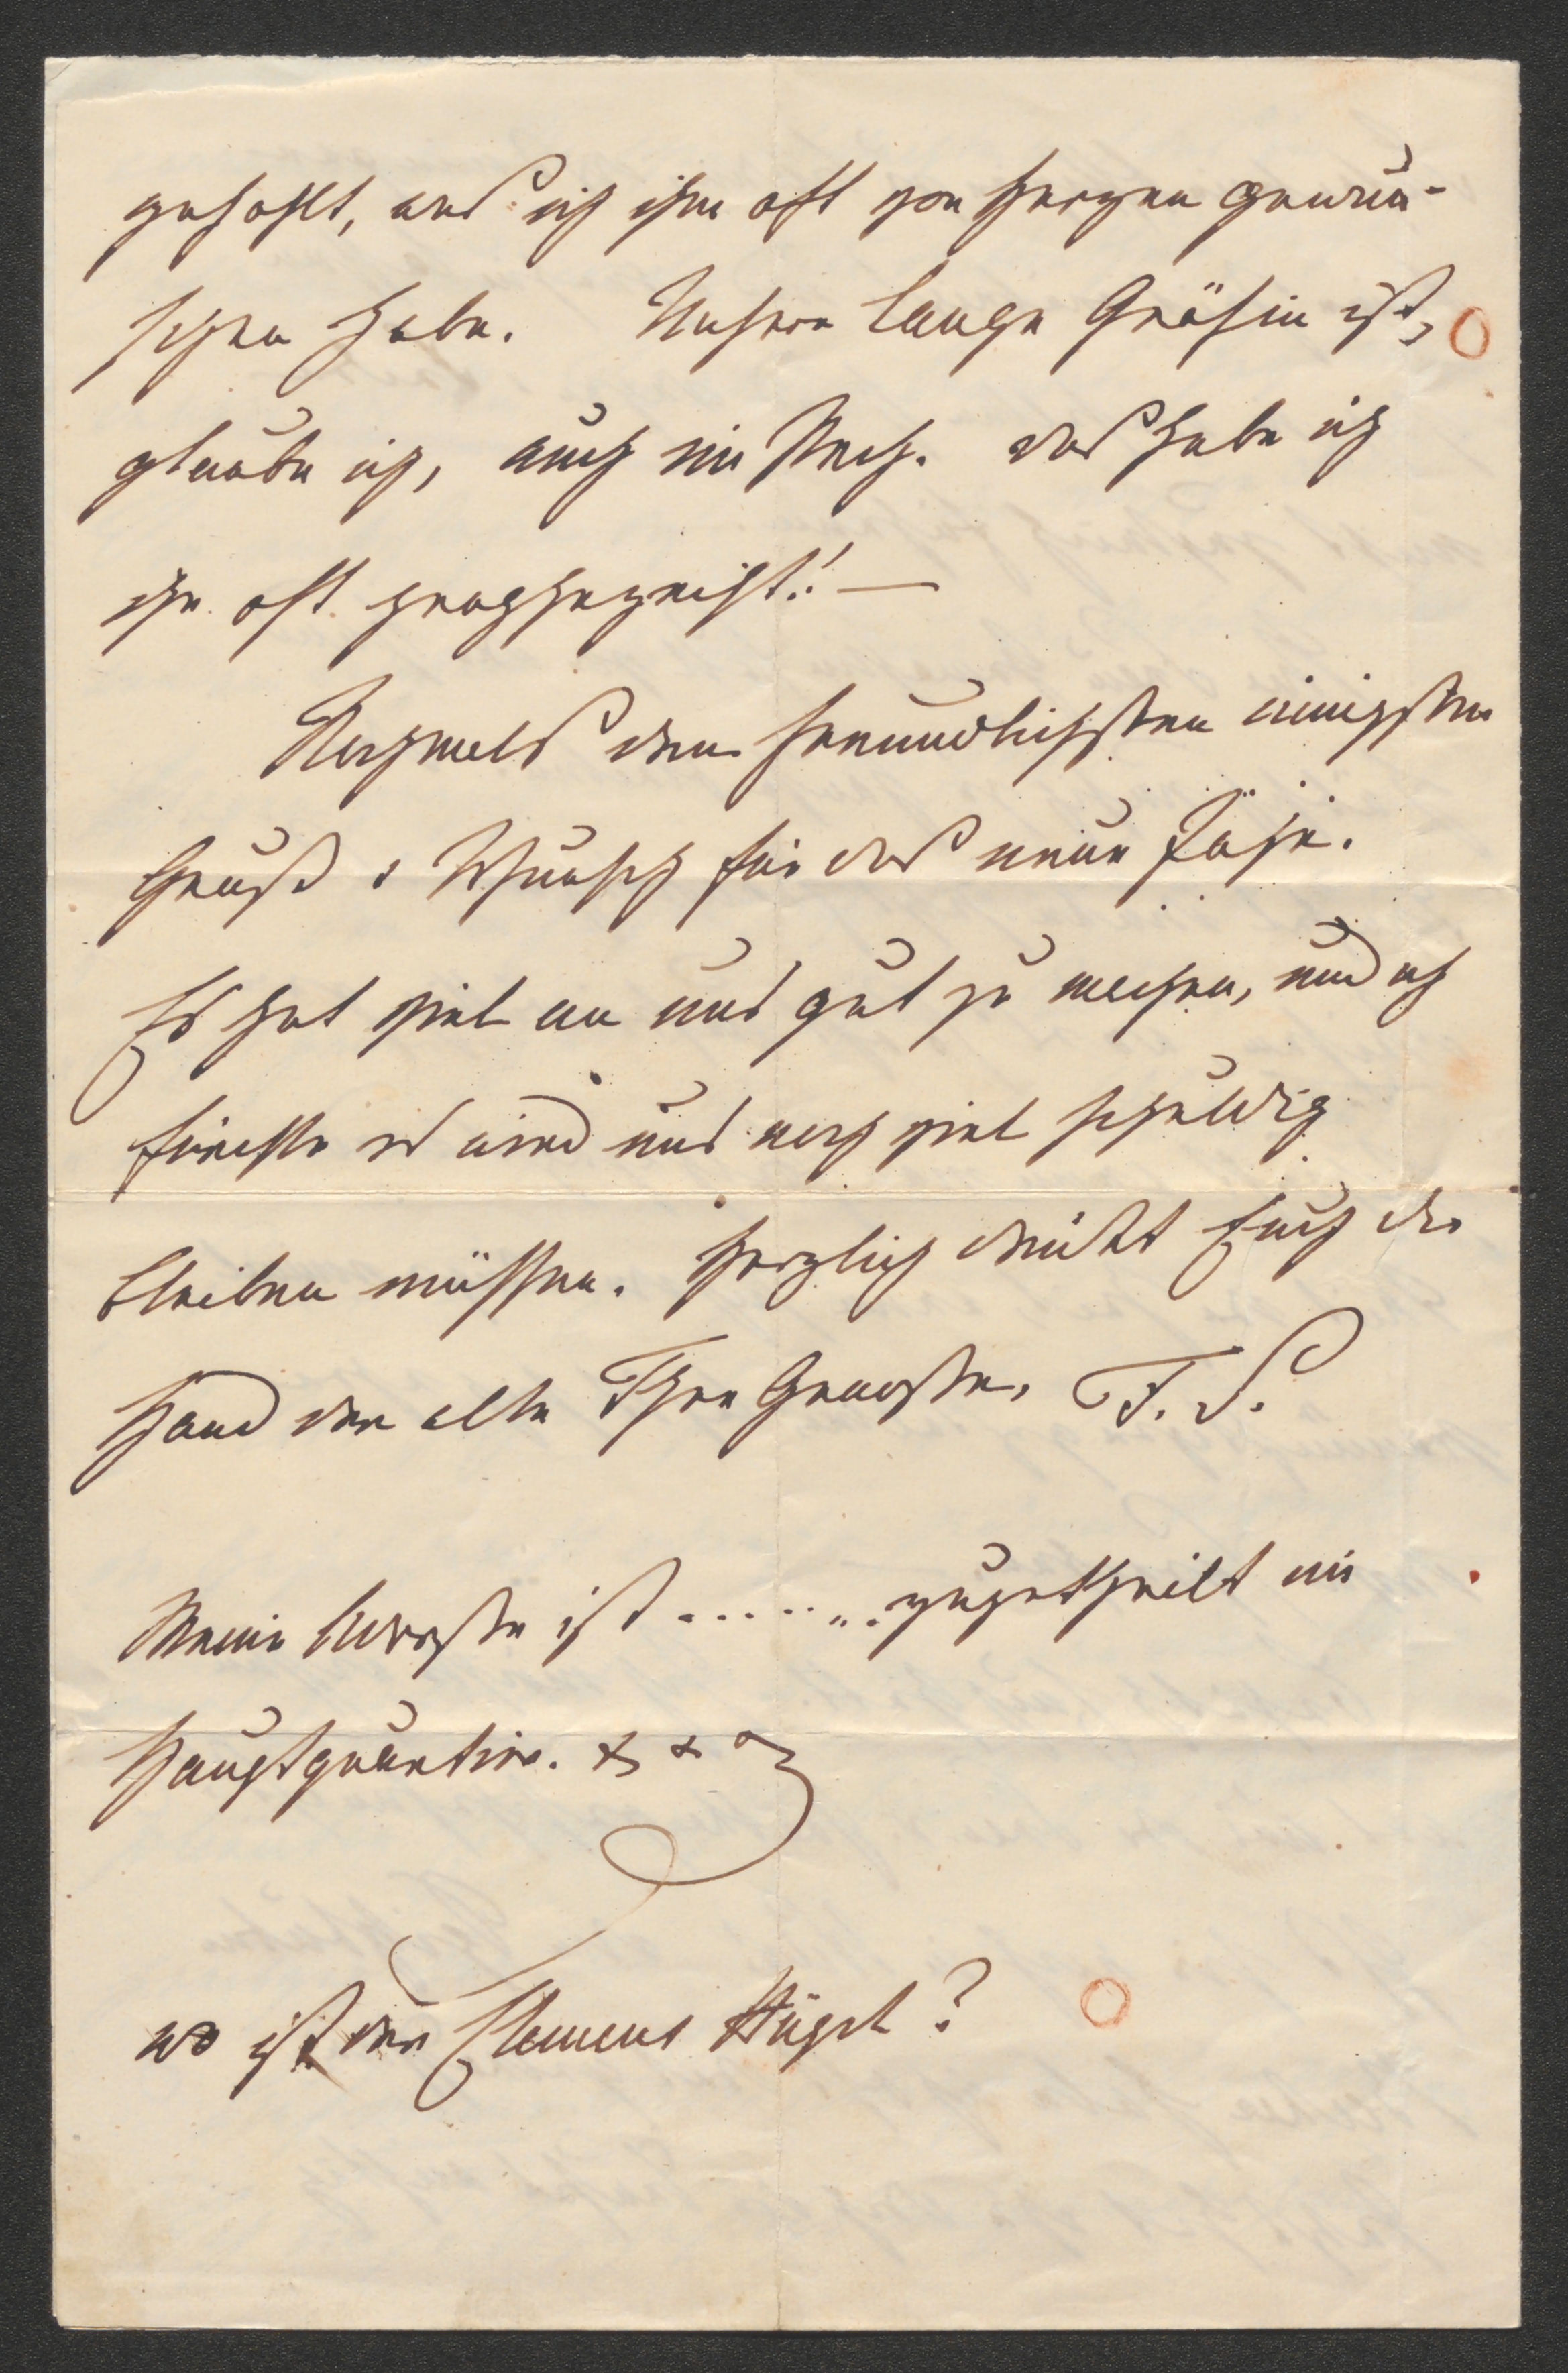 gefehlt, was ich ihm oft von Herzen gewün-
schen habe. Unsere lange Gräfin ist,
glaube ich, auch im Pech. das habe ich
ihr oft prophezeiht! —
Nochmals den freundlichsten innigsten
Gruß & Wunsch für das neue Jahr.
Es hat viel an uns gut zu machen, und ich
fürchte es wird uns noch viel schuldig
bleiben müssen. Herzlich drückt Euch die
Hand der alte Thee Genosse. F. S.
Meine Adresse ist ........ zugetheilt im
Hauptquartier. x x
wo ist der Clemens Hügel?